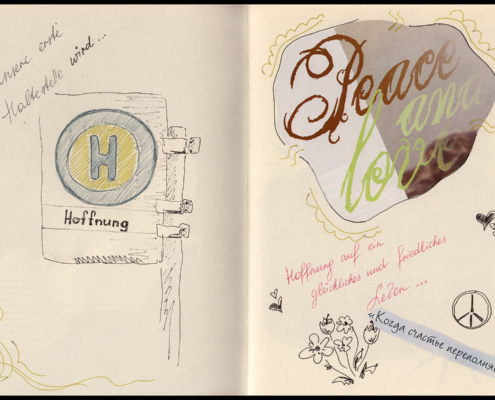 unsere erste
Haltestelle wird...
H
Hoffnung
Peace
and
love
Hoffnung auf ein
glückliches und friedliches
Leben ...
«Когда счастье переполня